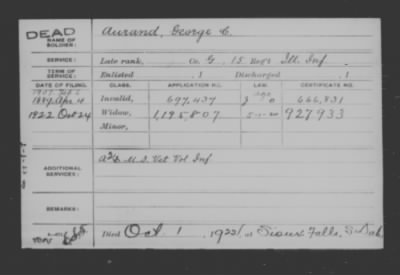 DEAD
NAME OF SOLDIER: Aurand, George C.
SERVICE: Late rank, Co. G, 15 Reg't Ill. Inf.
TERM OF SERVICE: Enlisted , 1 Discharged , 1
DATE OF FILING. CLASS. APPLICATION NO. LAW. CERTIFICATE NO.
1907
1889 Apr Invalid, 697,437 666,831
1922 Oct 24 Widow, 1,195,807 5-1-20 927933
Minor,
ADDITIONAL SERVICES: Vet Vol Inf
REMARKS:
Died Oct. 1, 1922, at Sioux Falls, S. Dak.